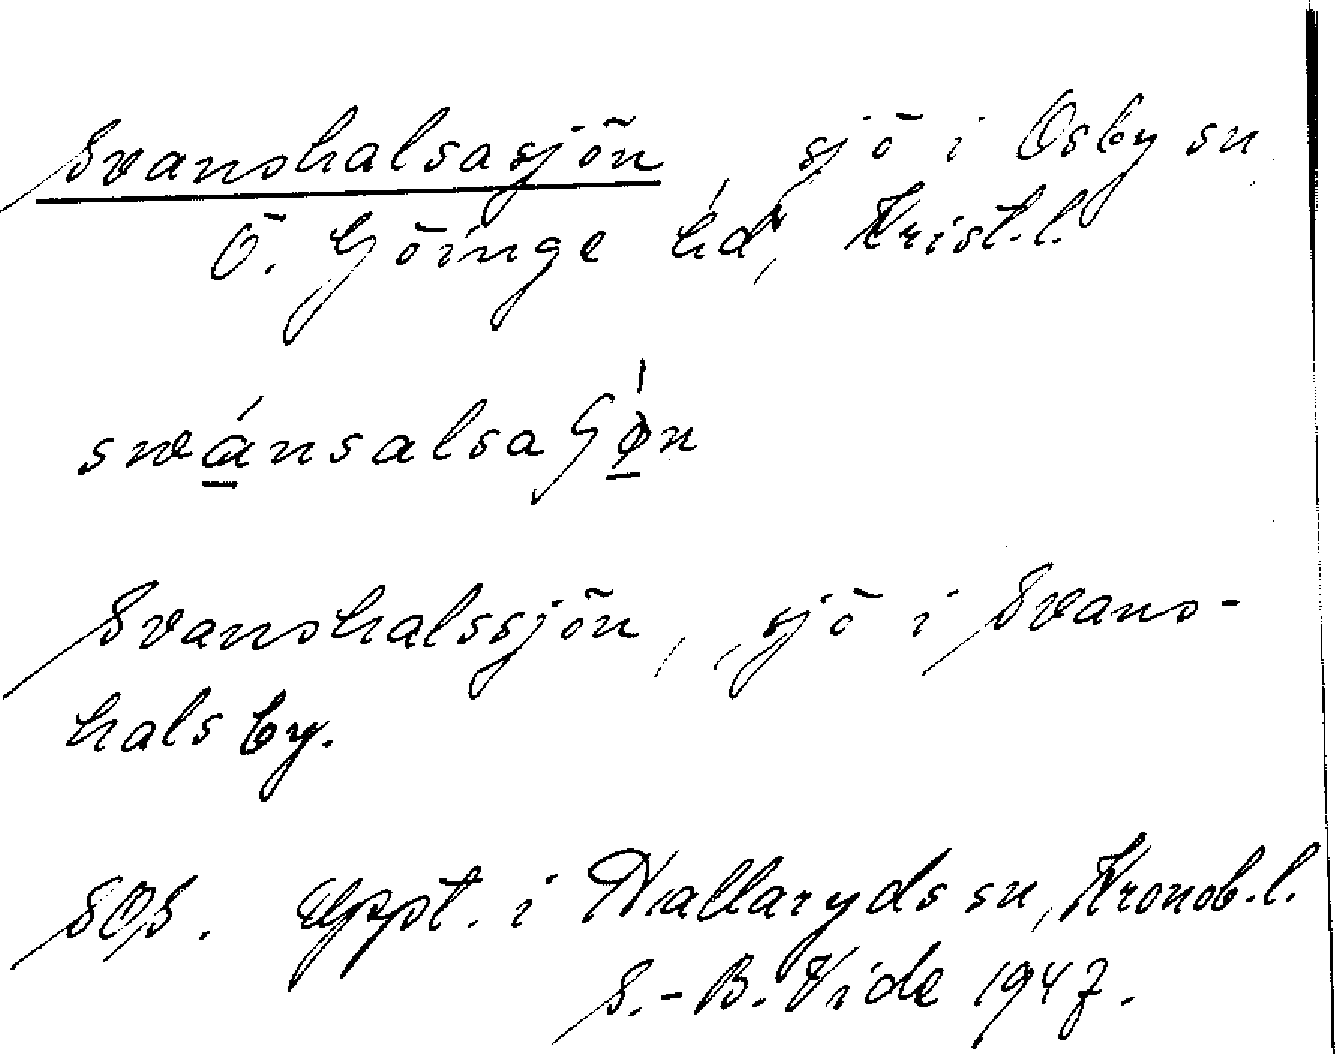 Svanshalsasjön, sjö i Osby sn
Ö. Göinge hd, Krist.l.
svánsalsa
Svanshalssjön, sjö i Svans-
hals by.
SOS. Uppt. i Hallaryds sn, Kronob.l.
S.-B. Vide 1947.